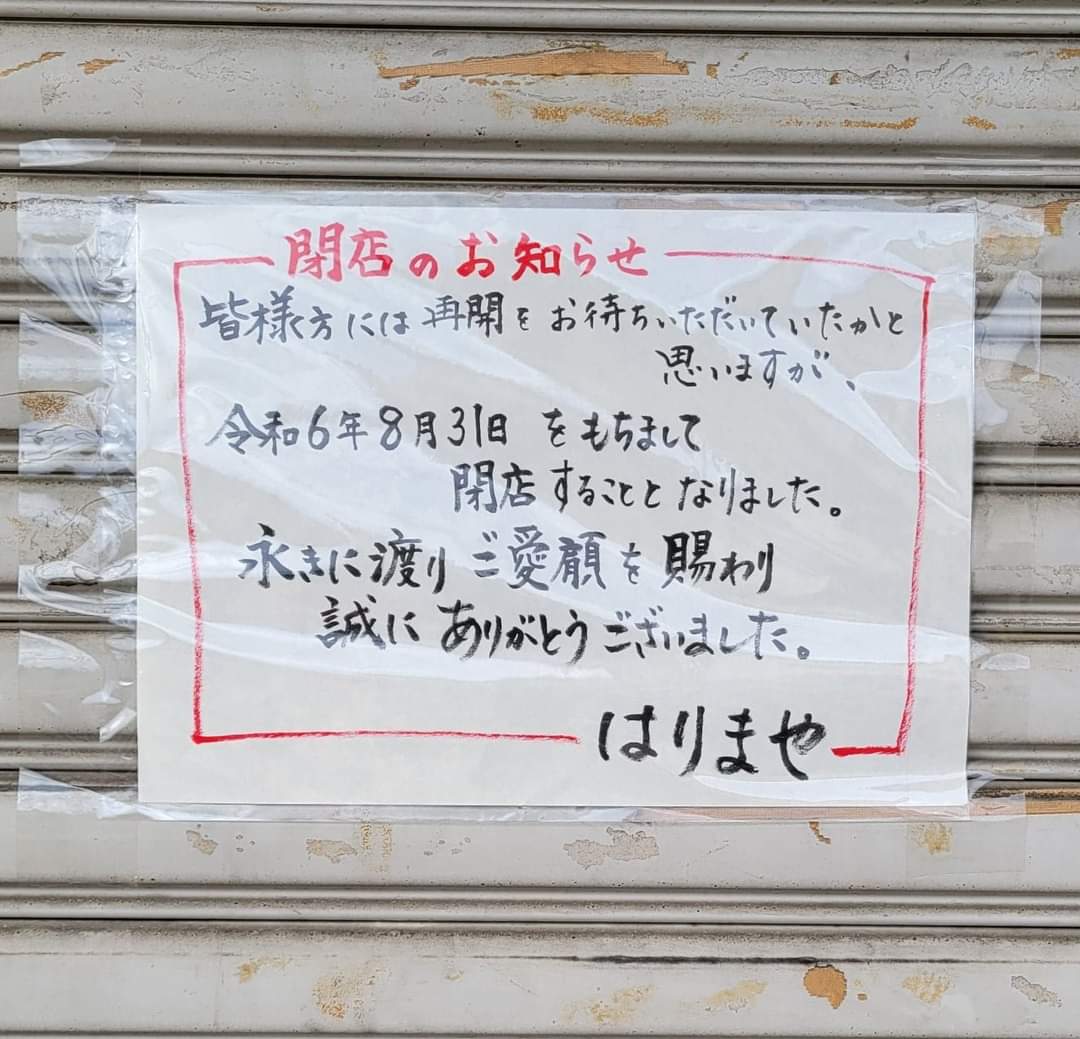 閉店のお知らせ
皆様方には再開をお待ちいただいていたかと
思いますが、
令和6年8月31日をもちまして
閉店することとなりました。
永きに渡りご愛顧を賜わり
誠にありがとうございました。
はりまや